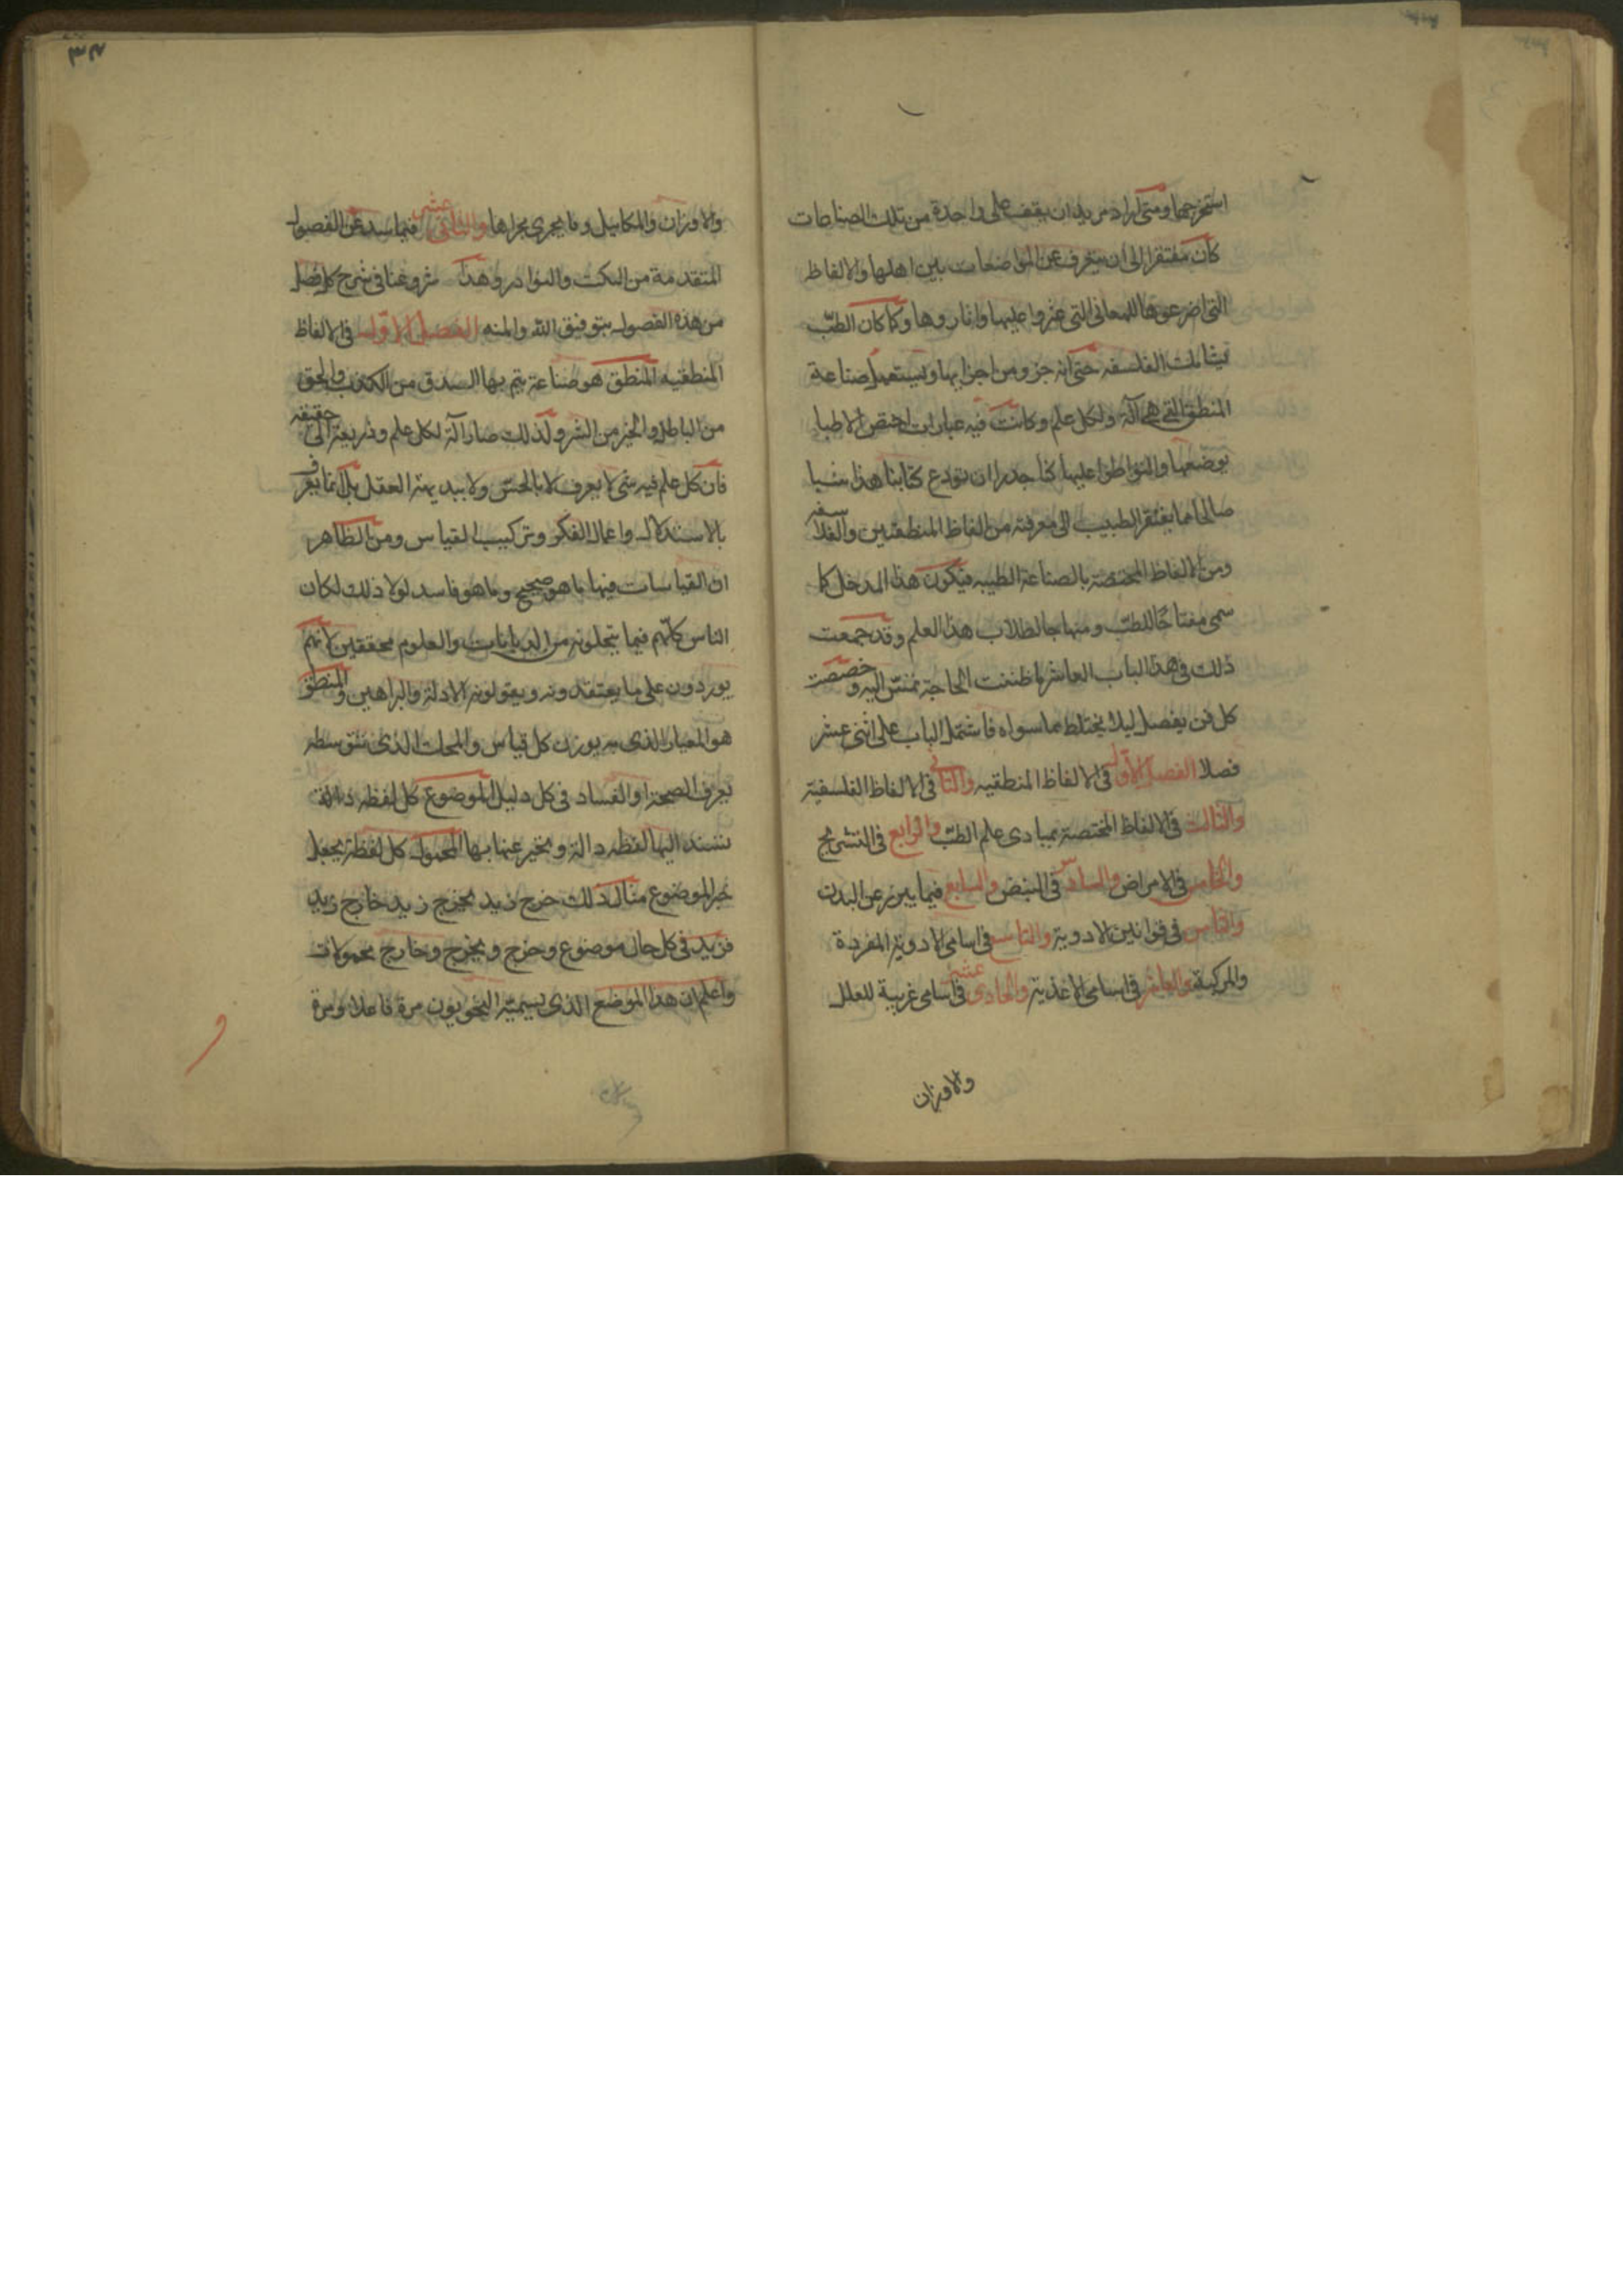 استخرجها ومتى اراد مريد ان يقف على واحدة من تلك الصناعات
كان مفتقرا الى ان يتعرف عن المواضعات بين اهلها والالفاظ
التى اخترعوها للمعانى التى عثروا عليها واثاروها ولما كان الطبّ
يشابك الفلسفه حتى انه جزو من اجزايها ويستعمل صناعة
المنطق التى هى آلة ولكل علم وكانت فيه عبارات اختص الاطبا
بوضعها والتواطؤ عليها كنا جدرا ان نودع كتابنا هذا شيا
صالحا مما يفتقر الطبيب الى معرفته من الفاظ المنطقيين والفلاسفه
ومن الالفاظ المختصة بالصناعة الطبيه فيكون هذا المدخل كما
سمى مفتاحًا للطبّ ومنهاجا لطلاب هذا العلم وقد جمعت
ذلك فى هذا الباب العاشر ما ظننت الحاجة تمسّ اليه وخصصت
كل فن بفصل ليلا يختلط بما سواه فاشتمل الباب على اثنى عشر
فصلا الفصل الاول فى الالفاظ المنطقيه والثانى فى الالفاظ الفلسفية
والثالث فى الالفاظ المختصة بمبادى علم الطبّ والرابع فى التشريح
والخامس فى الامراض والسادس فى النبض والسابع فيما يبرز عن البدن
والثامن فى قوانين الادوية والتاسع فى اسامى الادوية المفردة
والمركبة والعاشر فى اسامى الاغذية والحادى عشر فى اسامى غريبة للعلل
والاوزان
٣٤
والاوزان والمكاييل وما يجرى مجراها والثانى عشر فيما سدّ عن الفصول
المتقدمة من النكت والنوادر وهذا شروعنا فى شرح كل فصل
من هذه الفصول بتوفيق الله والمنه الفصل الاول فى الالفاظ
المنطقيه المنطق هو صناعة يتم بها السدق من الكذب والحق
من الباطل والخير من الشر ولذلك صار آلة لكل علم وذريعة الى حقيقه
فان كل علم فيه شى لا يعرف لا بالحسّ ولا ببديهة العقل بل انما يعرف
بالاستدلال واعمال الفكر وتركيب القياس ومن الظاهر
ان القياسات فيها ما هو صحيح وما هو فاسد لولا ذلك لكان
الناس كلهم فيما ينتحلونه من الديانات والعلوم محققين لانهم
يوردون على ما يعتقدونه ويقولونه الادلة والبراهين والمنطق
هو المعيار الذى به يوزن كل قياس والمحك الذى بتوسطه
يعرف الصحة او الفساد فى كل دليل الموضوع كل لفظه دالة
تسند اليها لفظه دالة ويخبر عنها بها المحمول كل لفظة يجعل
خبر الموضوع مثال ذلك خرج زيد يخرج زيد خارج زيد
فزيد فى كل حال موضوع وخرج ويخرج وخارج محمولات
واعلم ان هذا الموضع الذى يسميه النحويون مرة فاعلا ومرة